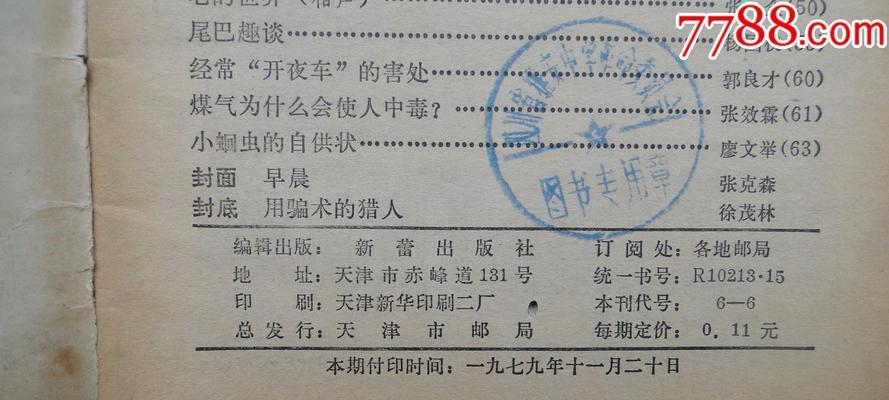 7788.com
尾巴趣谈
经常“开夜车”的害处……郭良才(60)
煤气为什么会使人中毒?……张效霖(61)
小蛔虫的自供状……廖文举(63)
封面 早晨 张克森
封底 用骗术的猎人 徐茂林
图书专用章
编辑出版：新蕾出版社 订阅处：各地邮局
地址：天津市赤峰道131号 统一书号：R10213·15
印刷：天津新华印刷二厂 本刊代号：6—6
总发行：天津市邮局 每期定价：0.11元
本期付印时间：一九七九年十一月二十日